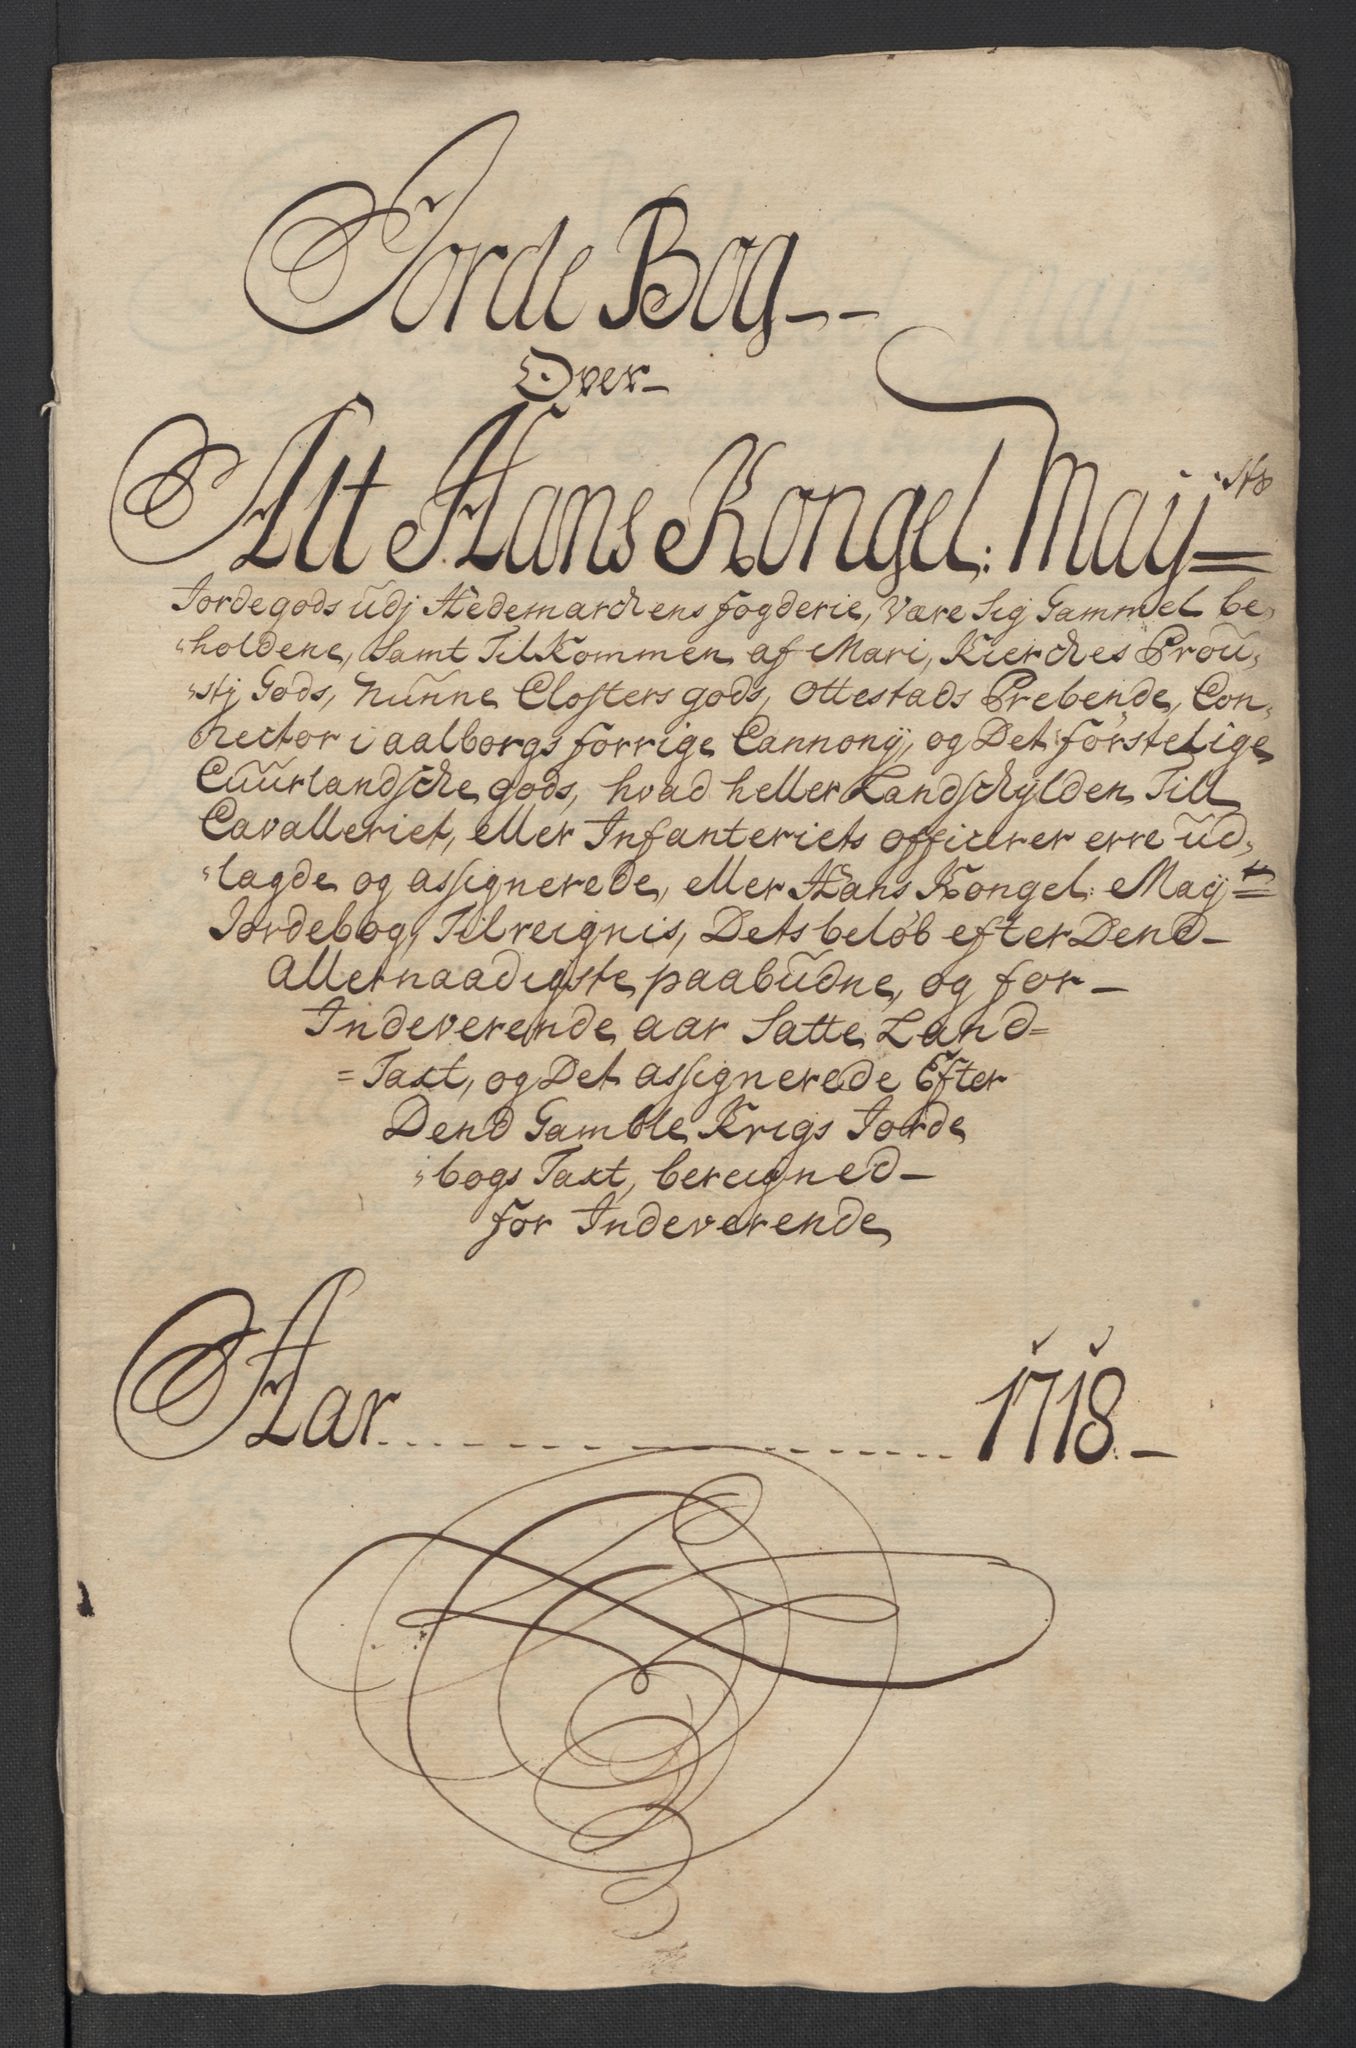 Jorde Bog--
Over-
Alt Hans Kongel: Mayts
Jordegods udj Hedemarchens fogderie, være sig Gammel be,
"holdene, samt Tilkommen af Mari, Kierches Prou,
"stj Gods, Nunne Closters gods, Ottestads Prebende, Con,
rector i aalborgs forrige Cannonij, og Det förstelige
Cuurlandsche gods, hvad heller Landschylden Till
Cavalleriet, eller Infanteriets officerer erre ud,
"lagde og assignerede, eller Hans Kongel: Mayts
Jordebog Tilreignis, Dets beløb efter Dend-
Allernaadigste paabudne, og for-
Indeverende aar Satte Land=
=Taxt, og Det assignerede Efter
Dend Gamble Krigs Jorde
"bogs Taxt, bereigned-
for Indeverende
Aar ................ 1718.-